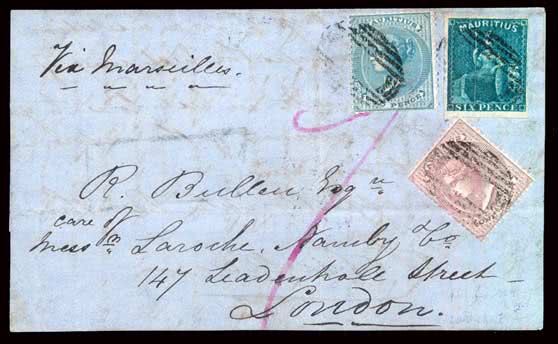 MAURITIUS
PENCE
MAURITIUS
SIX PENCE
Via Marseilles.
R. Bullen Esqre
care of
Messrs Laroche, Namby & Co
147 Leadenhall Street
London.